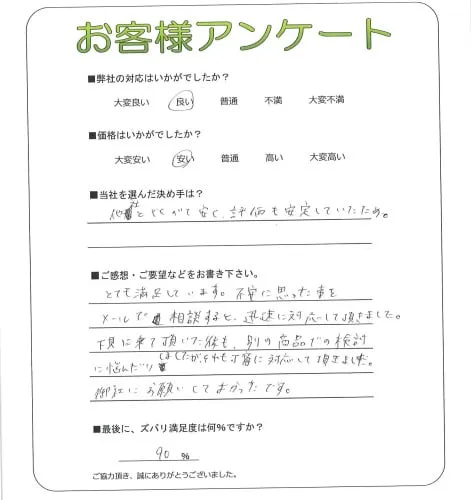 お客様アンケート
■弊社の対応はいかがでしたか？
大変良い 良い 普通 不満 大変不満
■価格はいかがでしたか？
大変安い 安い 普通 高い 大変高い
■当社を選んだ決め手は？
他社とくらべて安く、評価も安定していたため。
■ご感想・ご要望などをお書き下さい。
とても満足しています。不安に思った事を
メールで相談すると、迅速に対応して頂きました。
下見に来て頂いた後も、別の商品での検討
に悩んだりしましたがそれも丁寧に対応して頂きました。
御社にお願いしてよかったです。
■最後に、ズバリ満足度は何％ですか？
90 %
ご協力頂き、誠にありがとうございました。